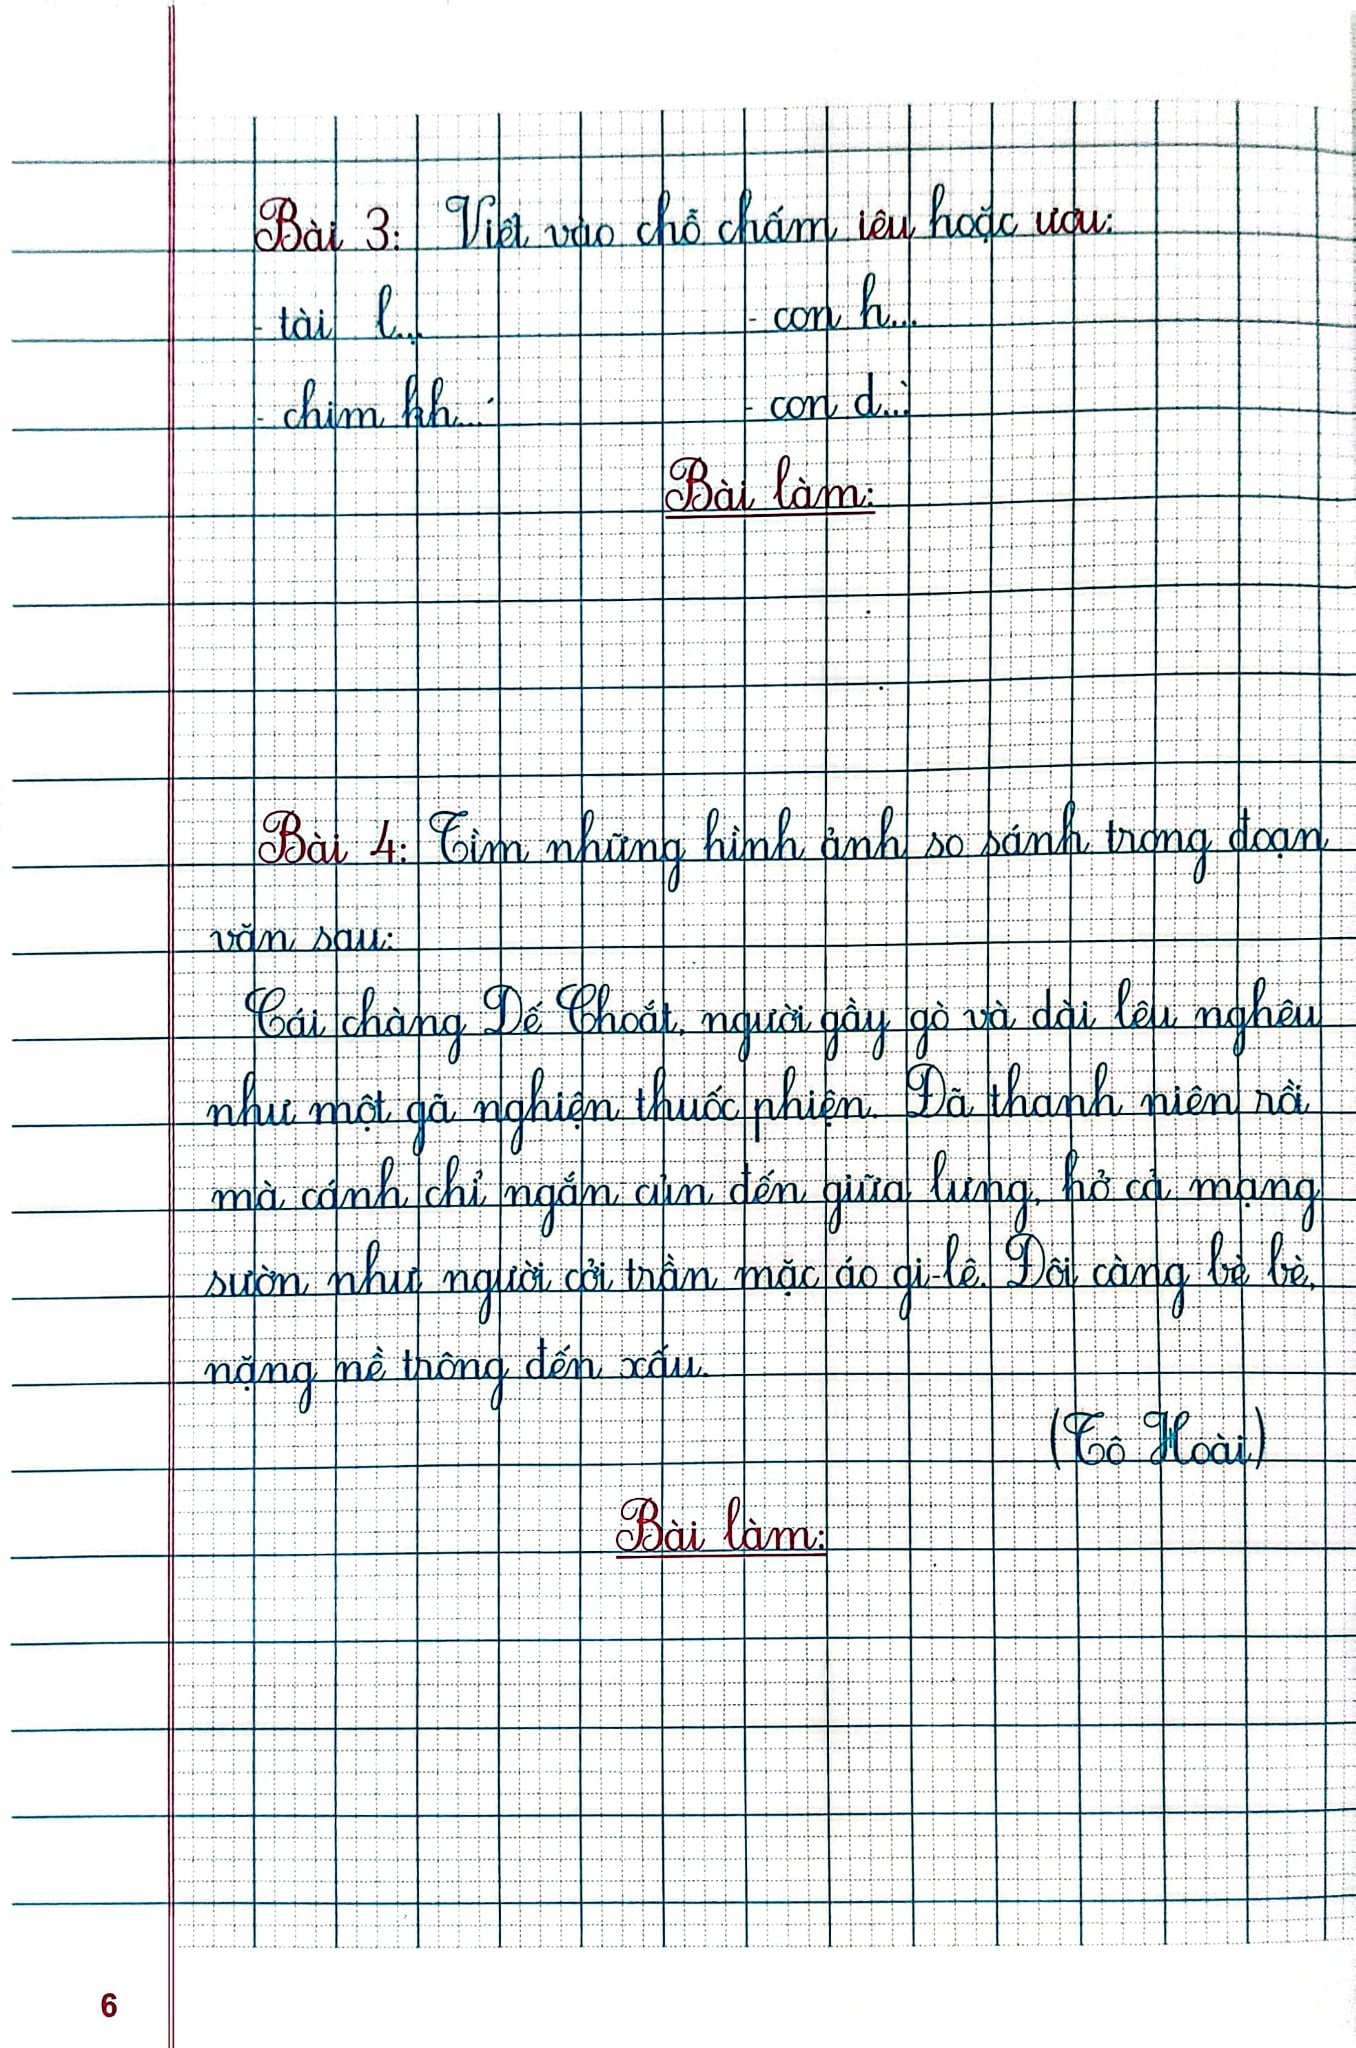 Bài 3: Viết vào chỗ chấm iêu hoặc ươu:
- tài l.̣..
- con h...
- chim kh...́
- con d...̀
Bài làm:
Bài 4: Tìm những hình ảnh so sánh trong đoạn
văn sau:
Cái chàng Dế Choắt, người gầy gò và dài lêu nghêu
như một gã nghiện thuốc phiện. Đã thanh niên rồi
mà cánh chỉ ngắn củn đến giữa lưng, hở cả mạng
sườn như người cởi trần mặc áo gi-lê. Đôi càng bè bè,
nặng nề trông đến xấu.
(Tô Hoài)
Bài làm:
6